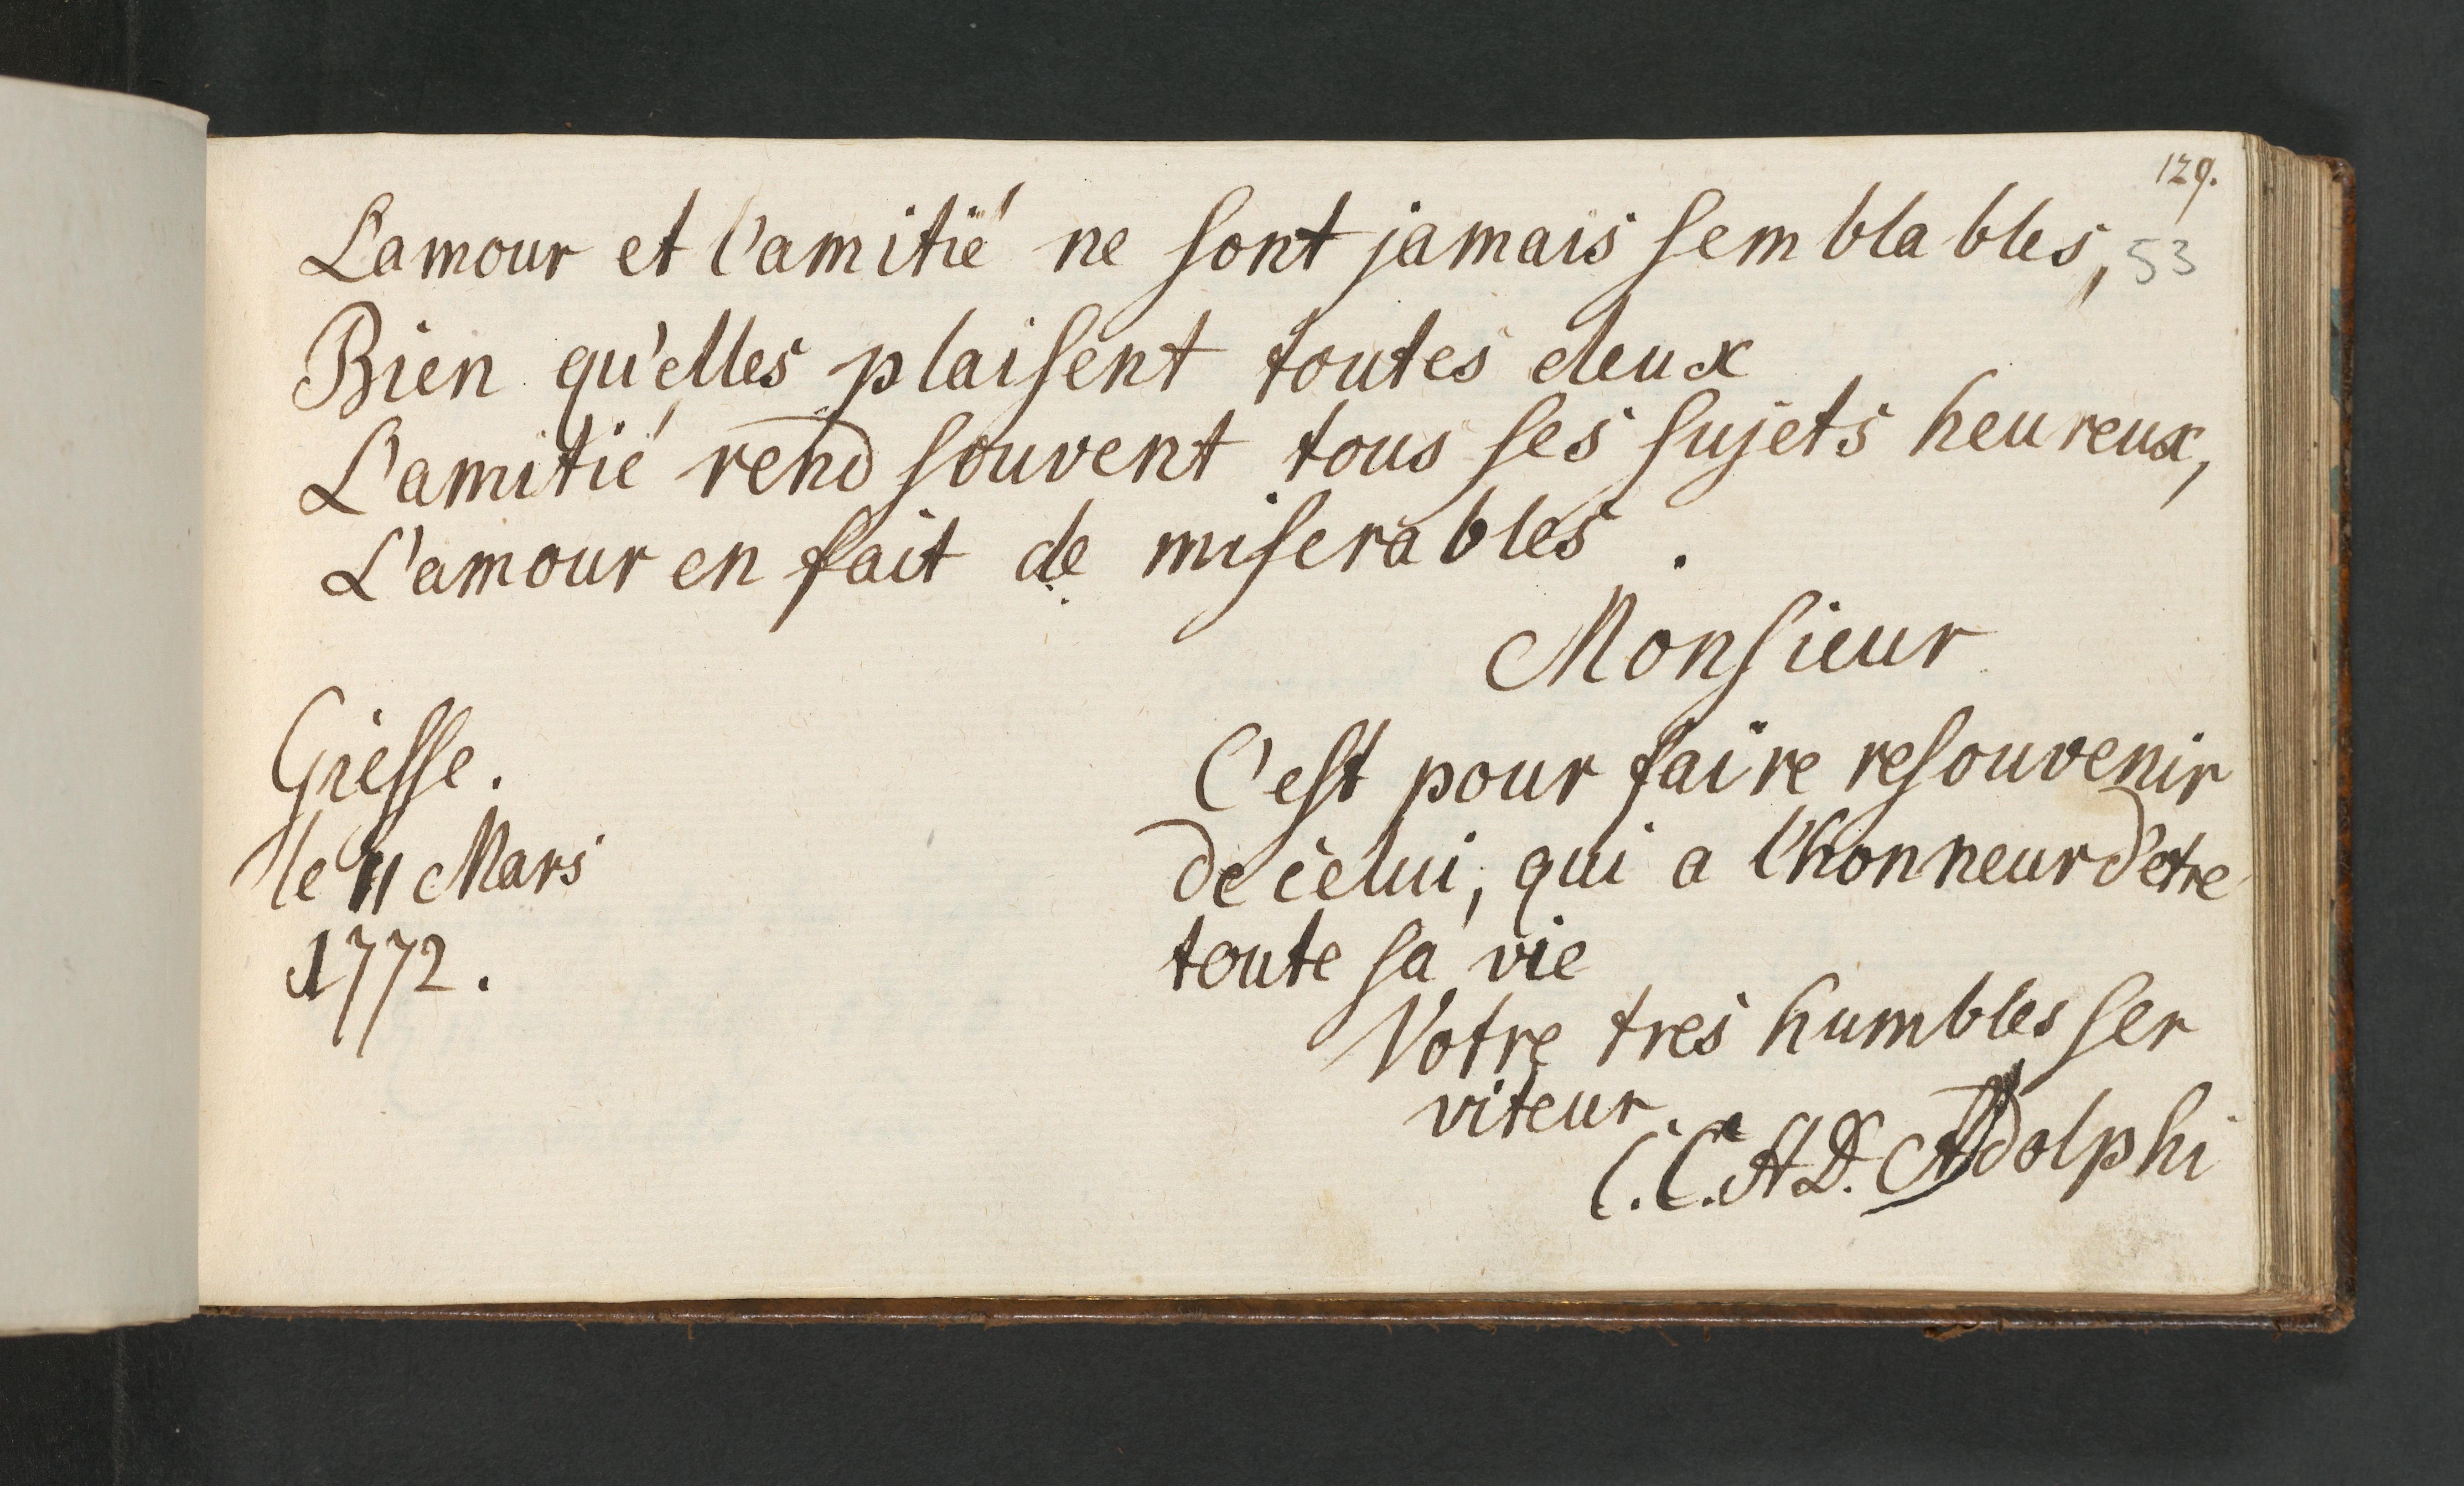 129.
L'amour et l'amitié ne sont jamais semblables,
53
Bien qu'elles plaisent toutes deux
L'amitié rend souvent tous ses sujets heureux,
L'amour en fait de miserables.
Monsieur
Giesse.
le 11 Mars
1772.
C'est pour faire resouvenir
de celui, qui a l'honneur d'etre
toute sa vie
Votre tres humbles ser
viteur.
C.C.A.D. Adolphi